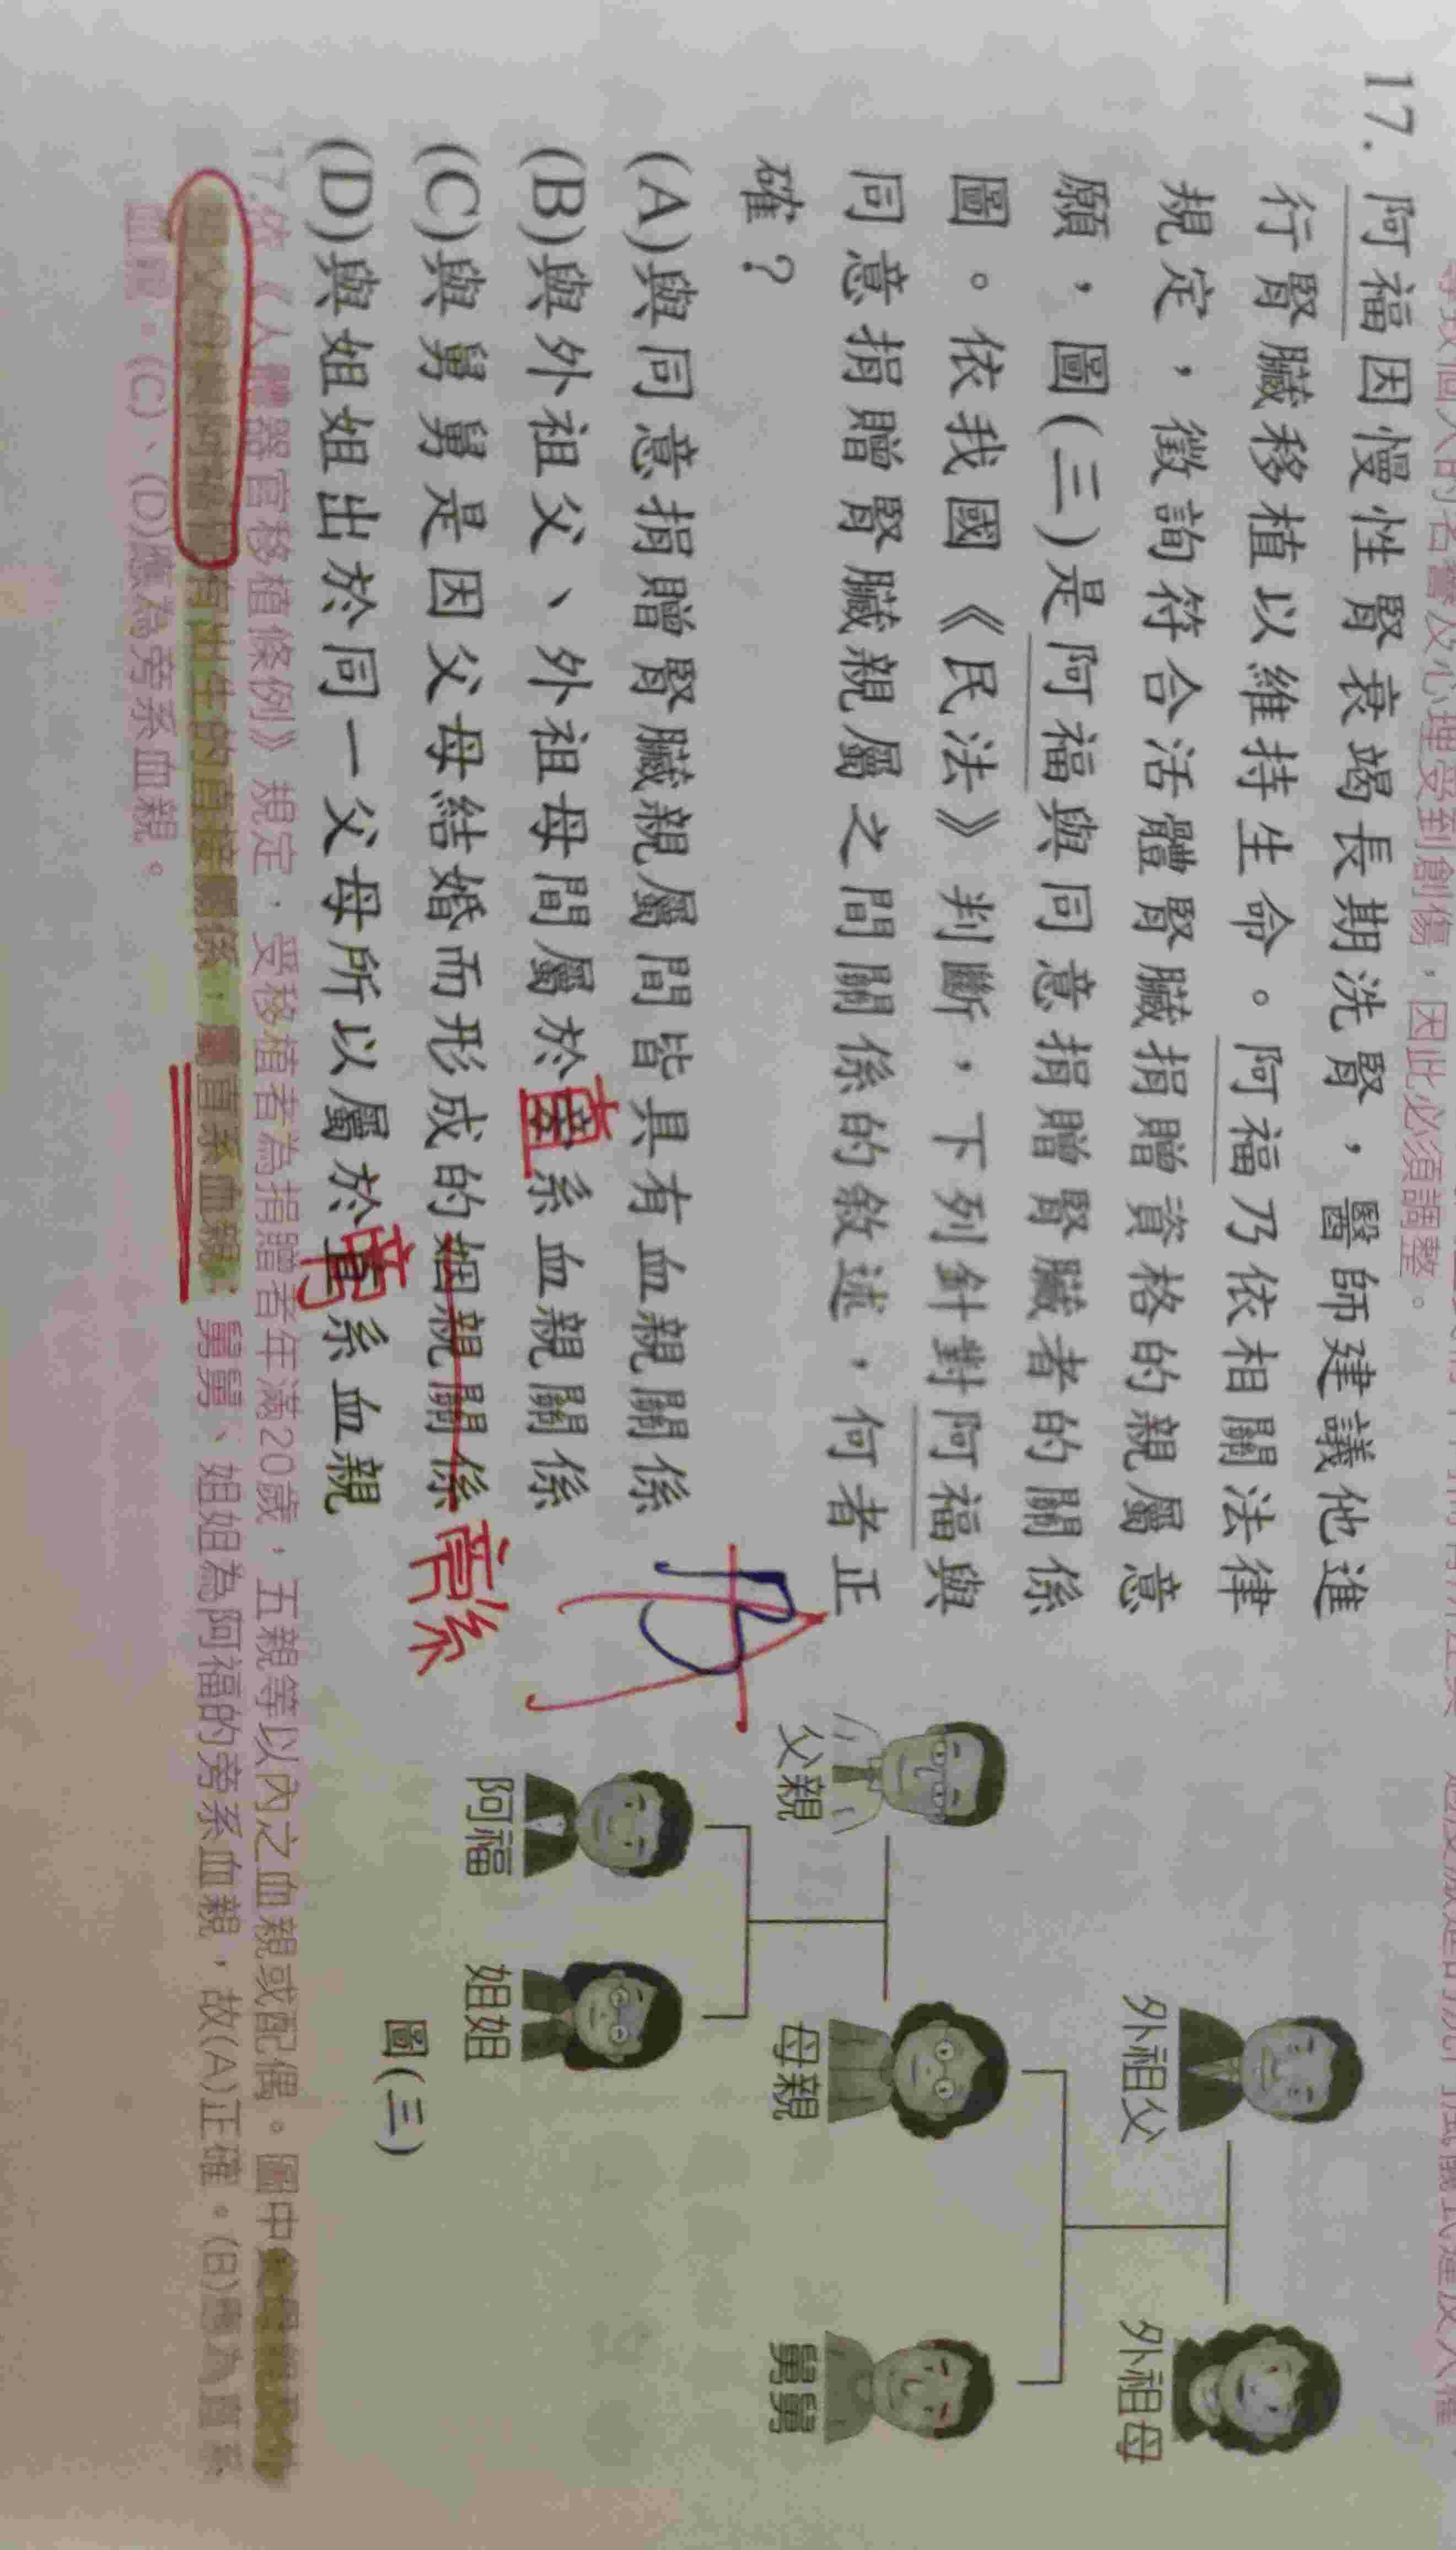 導致個人的名譽及心理受到創傷，因此必須調整。
17. 阿福因慢性腎衰竭長期洗腎，醫師建議他進
行腎臟移植以維持生命。阿福乃依相關法律
規定，徵詢符合活體腎臟捐贈資格的親屬意
願，圖(三)是阿福與同意捐贈腎臟者的關係
圖。依我國《民法》判斷，下列針對阿福與
同意捐贈腎臟親屬之間關係的敘述，何者正
確？
(A)與同意捐贈腎臟親屬間皆具有血親關係
(B)與外祖父、外祖母間屬於直系血親關係
(C)與舅舅是因父母結婚而形成的姻親關係 旁系
(D)與姐姐出於同一父母所以屬於旁系血親
A
外祖父
外祖母
父親
母親
舅舅
阿福
姐姐
圖(三)
17.依《人體器官移植條例》規定，受移植者為捐贈者年滿20歲，五親等以內之血親或配偶。圖中
有出生的直接關係，屬直系血親；舅舅、姐姐為阿福的旁系血親，故(A)正確。(B)應為直系
血親。(C)、(D)應為旁系血親。